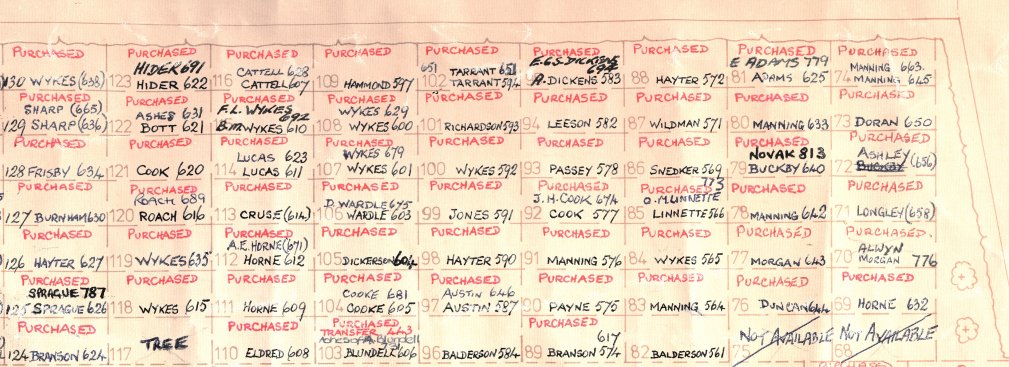 PURCHASED PURCHASED PURCHASED PURCHASED PURCHASED PURCHASED PURCHASED PURCHASED PURCHASED
HIDER 691 CATTELL 628 651 TARRANT 651 E.G.S. DICKENS 694 E ADAMS 779 MANNING 663
130 WYKES (638) 123 HIDER 622 116 CATTELL 607 109 HAMMOND 597 102 TARRANT 594 A. DICKENS 583 88 HAYTER 572 81 ADAMS 625 74 MANNING 645
PURCHASED PURCHASED PURCHASED PURCHASED PURCHASED PURCHASED PURCHASED PURCHASED PURCHASED
SHARP (665) ASHES 631 F.L. WYKES 692 WYKES 629
129 SHARP (636) 122 BOTT 621 B.M WYKES 610 108 WYKES 600 101 RICHARDSON 593 94 LEESON 582 87 WILDMAN 571 80 MANNING 633 73 DORAN 650
PURCHASED PURCHASED PURCHASED PURCHASED PURCHASED PURCHASED PURCHASED PURCHASED PURCHASED
LUCAS 623 WYKES 679 NOVAK 813 ASHLEY (656)
128 FRISBY 634 121 COOK 620 114 LUCAS 611 107 WYKES 601 100 WYKES 592 93 PASSEY 578 86 SNEDKER 569 79 BUCKBY 640 72 BUCKBY
PURCHASED PURCHASED PURCHASED PURCHASED PURCHASED PURCHASED PURCHASED PURCHASED PURCHASED
ROACH 689 D. WARDLE 675 J.H. COOK 674 773 O.M. LINNETTE
127 BURNHAM 630 120 ROACH 616 113 CRUSE (614) 106 WARDLE 603 99 JONES 591 92 COOK 577 85 LINNETTE 566 78 MANNING 642 71 LONGLEY (658)
PURCHASED PURCHASED PURCHASED PURCHASED PURCHASED PURCHASED PURCHASED PURCHASED PURCHASED.
A.E. HORNE (671) ALWYN
126 HAYTER 627 119 WYKES 635 112 HORNE 612 105 DICKERSON 604 98 HAYTER 590 91 MANNING 576 84 WYKES 565 77 MORGAN 643 70 MORGAN 776
PURCHASED PURCHASED PURCHASED PURCHASED PURCHASED PURCHASED PURCHASED PURCHASED PURCHASED
SPRAGUE 787 COOKE 681 AUSTIN 646
125 SPRAGUE 626 118 WYKES 615 111 HORNE 609 104 COOKE 605 97 AUSTIN 587 90 PAYNE 575 83 MANNING 564 76 DUNCAN 644 69 HORNE 632
PURCHASED PURCHASED PURCHASED PURCHASED PURCHASED PURCHASED
TRANSFER 443 617
TREE Blundell NOT AVAILABLE NOT AVAILABLE
124 BRANSON 624 117 110 ELDRED 608 103 BLUNDELL 606 96 BALDERSON 584 89 BRANSON 574 82 BALDERSON 561 75 68
PURCHASED